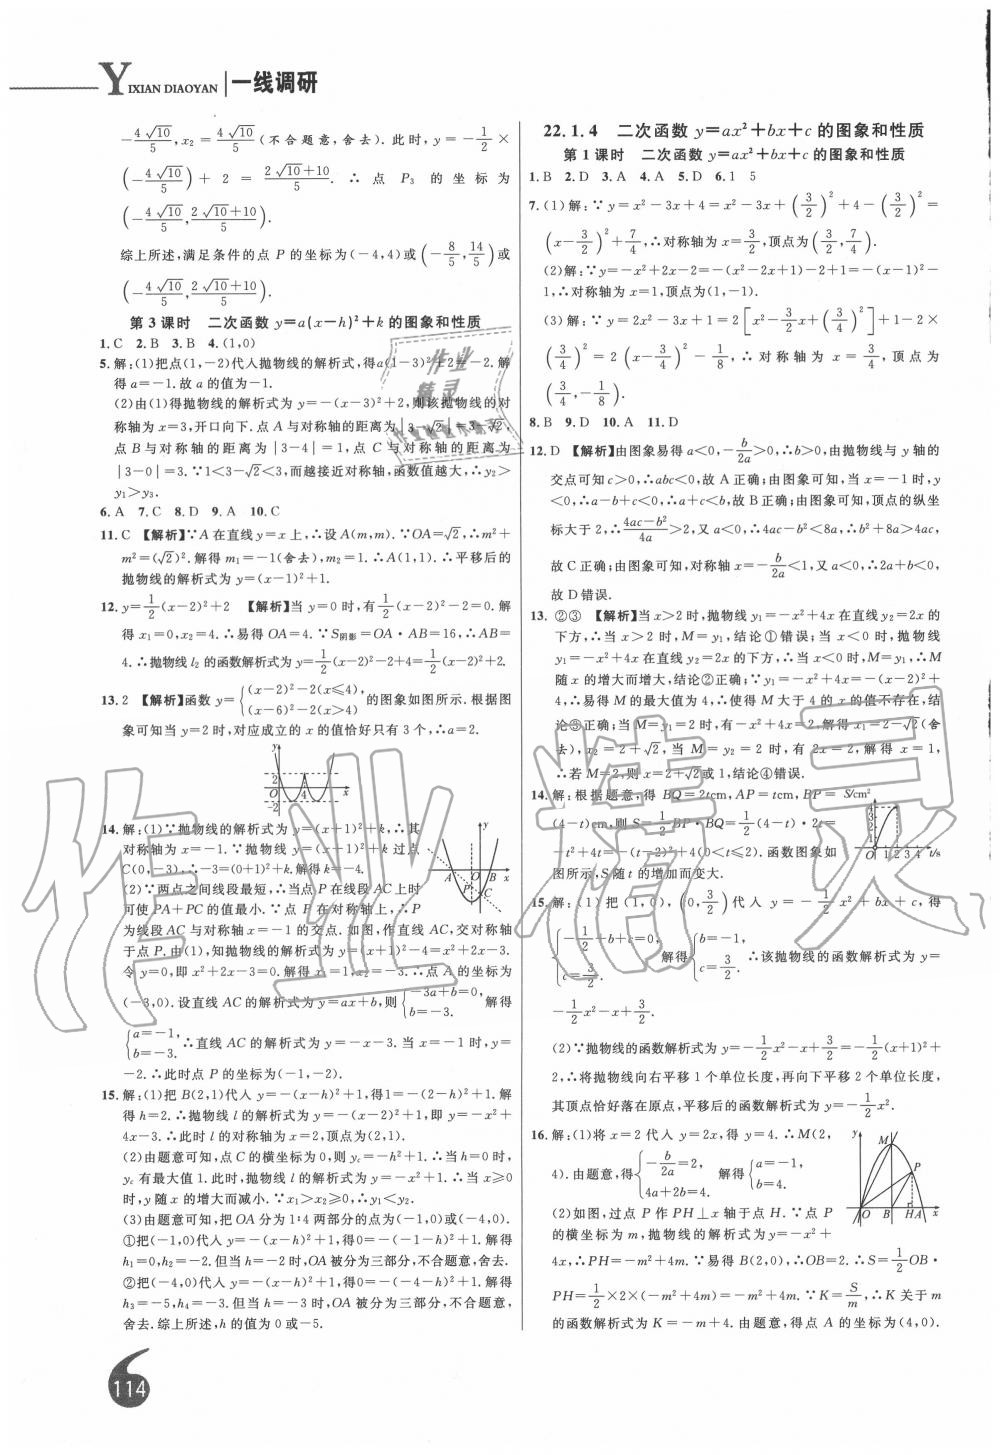 YIXIAN DIAOYAN 一线调研
-4√10/5, x₂=4√10/5(不合题意,舍去).此时,y=-1/2×
(-4√10/5)+2=(2√10+10)/5.∴点P₃的坐标为
(-4√10/5,(2√10+10)/5).
综上所述,满足条件的点P的坐标为(-4,4)或(-8/5,14/5)或
(-4√10/5,(2√10+10)/5).
第3课时 二次函数y=a(x-h)²+k的图象和性质
1.C 2.B 3.B 4.(1,0)
5.解:(1)把点(1,-2)代入抛物线的解析式,得a(1-3)²+2=-2.解
得a=-1.故a的值为-1.
(2)由(1)得抛物线的解析式为y=-(x-3)²+2,则该抛物线的对
称轴为x=3,开口向下.点A与对称轴的距离为|3-√2|=3-√2,
点B与对称轴的距离为|3-4|=1,点C与对称轴的距离为
|3-0|=3.∵1<3-√2<3,而越接近对称轴,函数值越大,∴y₂>
y₁>y₃.
6.A 7.C 8.D 9.A 10.C
11.C 【解析】∵A在直线y=x上,∴设A(m,m).∵OA=√2,∴m²+
m²=(√2)².解得m₁=-1(舍去),m₂=1.∴A(1,1).∴平移后的
抛物线的解析式为y=(x-1)²+1.
12.y=1/2(x-2)²+2 【解析】当y=0时,有1/2(x-2)²-2=0.解
得x₁=0,x₂=4.∴易得OA=4.∵S阴影=OA·AB=16,∴AB=
4.∴抛物线l₂的函数解析式为y=1/2(x-2)²-2+4=1/2(x-2)²+2.
13.2 【解析】函数y={(x-2)²-2(x≤4), (x-6)²-2(x>4)的图象如图所示.根据图
象可知当y=2时,对应成立的x的值恰好只有3个,∴a=2.
y 2 O 4 x -2
14.解:(1)∵抛物线的解析式为y=(x+1)²+k,∴其
对称轴为x=-1.∵抛物线y=(x+1)²+k过点
C(0,-3),∴-3=(0+1)²+k.解得k=-4.
(2)∵两点之间线段最短,∴当点P在线段AC上时
可使PA+PC的值最小.∵点P在对称轴上,∴P
为线段AC与对称轴x=-1的交点.如图,作直线AC,交对称轴
于点P.由(1),知抛物线的解析式为y=(x+1)²-4=x²+2x-3.
令y=0,即x²+2x-3=0.解得x₁=1,x₂=-3.∴点A的坐标为
(-3,0).设直线AC的解析式为y=ax+b,则{-3a+b=0, b=-3. 解得
{a=-1, b=-3. ∴直线AC的解析式为y=-x-3.当x=-1时,y=
-2.∴此时点P的坐标为(-1,-2).
y A O B x P C
15.解:(1)把B(2,1)代入y=-(x-h)²+1,得1=-(2-h)²+1.解
得h=2.∴抛物线l的解析式为y=-(x-2)²+1,即y=-x²+
4x-3.∴此时l的对称轴为x=2,顶点为(2,1).
(2)由题意可知,点C的横坐标为0,则yc=-h²+1.∴当h=0时,
yc有最大值1.此时,抛物线l的解析式为y=-x²+1.∴当x≥0
时,y随x的增大而减小.∵x₁>x₂≥0,∴y₁<y₂.
(3)由题意可知,把OA分为1:4两部分的点为(-1,0)或(-4,0).
①把(-1,0)代入y=-(x-h)²+1,得0=-(-1-h)²+1.解得
h₁=0,h₂=-2.但当h=-2时,OA被分为三部分,不合题意,舍去.
②把(-4,0)代入y=-(x-h)²+1,得0=-(-4-h)²+1.解得
h₃=-5,h₄=-3.但当h=-3时,OA被分为三部分,不合题意,
舍去.综上所述,h的值为0或-5.
22.1.4 二次函数y=ax²+bx+c的图象和性质
第1课时 二次函数y=ax²+bx+c的图象和性质
1.B 2.D 3.A 4.A 5.D 6.1 5
7.(1)解:∵y=x²-3x+4=x²-3x+(3/2)²+4-(3/2)²=
(x-3/2)²+7/4,∴对称轴为x=3/2,顶点为(3/2,7/4).
(2)解:∵y=-x²+2x-2=-(x²-2x+1)-2+1=-(x-1)²-
1,∴对称轴为x=1,顶点为(1,-1).
(3)解:∵y=2x²-3x+1=2[x²-3/2x+(3/4)²]+1-2×
(3/4)²=2(x-3/4)²-1/8,∴对称轴为x=3/4,顶点为
(3/4,-1/8).
8.B 9.D 10.A 11.D
12.D 【解析】由图象易得a<0,-b/2a>0,∴b>0,由抛物线与y轴的
交点可知c>0,∴abc<0,故A正确;由图象可知,当x=-1时,y
<0,∴a-b+c<0,∴a+c<b,故B正确;由图象可知,顶点的纵坐
标大于2,∴(4ac-b²)/4a>2,又a<0,∴4ac-b²<8a,∴b²+8a>4ac,
故C正确;由图象可知,对称轴x=-b/2a<1,又a<0,∴2a+b<0,
故D错误.
13.②③ 【解析】当x>2时,抛物线y₁=-x²+4x在直线y₂=2x的
下方,∴当x>2时,M=y₁,结论①错误;当x<0时,抛物线
y₁=-x²+4x在直线y₂=2x的下方,∴当x<0时,M=y₁,∴M
随x的增大而增大,结论②正确;∵y₁=-x²+4x=-(x-2)²+
4,∴易得M的最大值为4,∴使得M大于4的x的值不存在,结
论③正确;当M=y₁=2时,有-x²+4x=2,解得x₁=2-√2(舍
去),x₂=2+√2,当M=y₂=2时,有2x=2,解得x=1,
∴若M=2,则x=2+√2或1,结论④错误.
14.解:根据题意,得BQ=2tcm,AP=tcm,BP=
(4-t)cm,则S=1/2BP·BQ=1/2(4-t)·2t=
-t²+4t=-(t-2)²+4(0<t≤2).函数图象如
图所示,S随t的增加而变大.
S/cm² 4 3 2 1 O 1 2 3 4 t/s
15.解:(1)把(1,0),(0,3/2)代入y=-1/2x²+bx+c,得
{-1/2+b+c=0, c=3/2. 解得{b=-1, c=3/2. ∴该抛物线的函数解析式为y=
-1/2x²-x+3/2.
(2)∵抛物线的函数解析式为y=-1/2x²-x+3/2=-1/2(x+1)²+
2,∴将抛物线向右平移1个单位长度,再向下平移2个单位长度,
其顶点恰好落在原点,平移后的函数解析式为y=-1/2x².
16.解:(1)将x=2代入y=2x,得y=4.∴M(2,
4).由题意,得{-b/2a=2, 4a+2b=4. 解得{a=-1, b=4.
(2)如图,过点P作PH⊥x轴于点H.∵点P
的横坐标为m,抛物线的解析式为y=-x²+
4x,∴PH=-m²+4m.∵易得B(2,0),∴OB=2.∴S=1/2OB·
PH=1/2×2×(-m²+4m)=-m²+4m.∵K=S/m,∴K关于m
的函数解析式为K=-m+4.由题意,得点A的坐标为(4,0).
y M P O B H A x
作业精灵
114